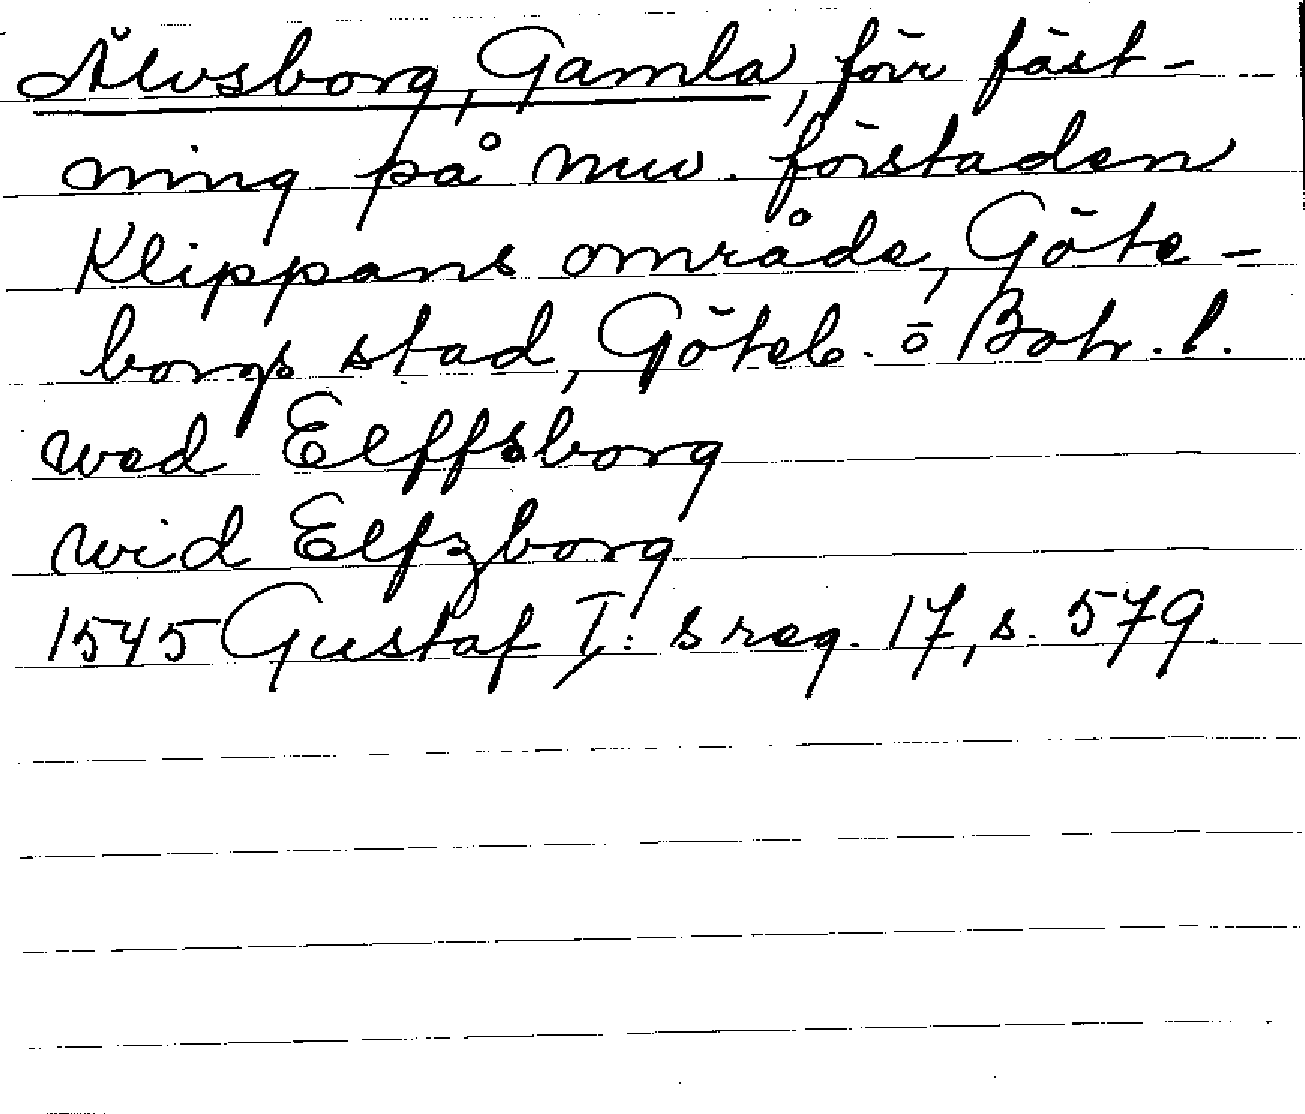 Älvsborg, Gamla, förr fäst-
ning på nuv. förstaden
Klippans område, Göte-
borgs stad, Göteb. o Boh. l.
wed Elffsborg
wid Elfzborg
1545 Gustaf I:s reg. 17, s. 579.